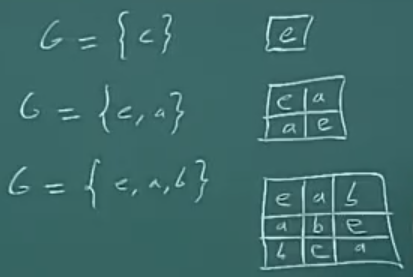 G = {e}
e
G = {e, a}
e a
a e
G = {e, a, b}
e a b
a b e
b e a